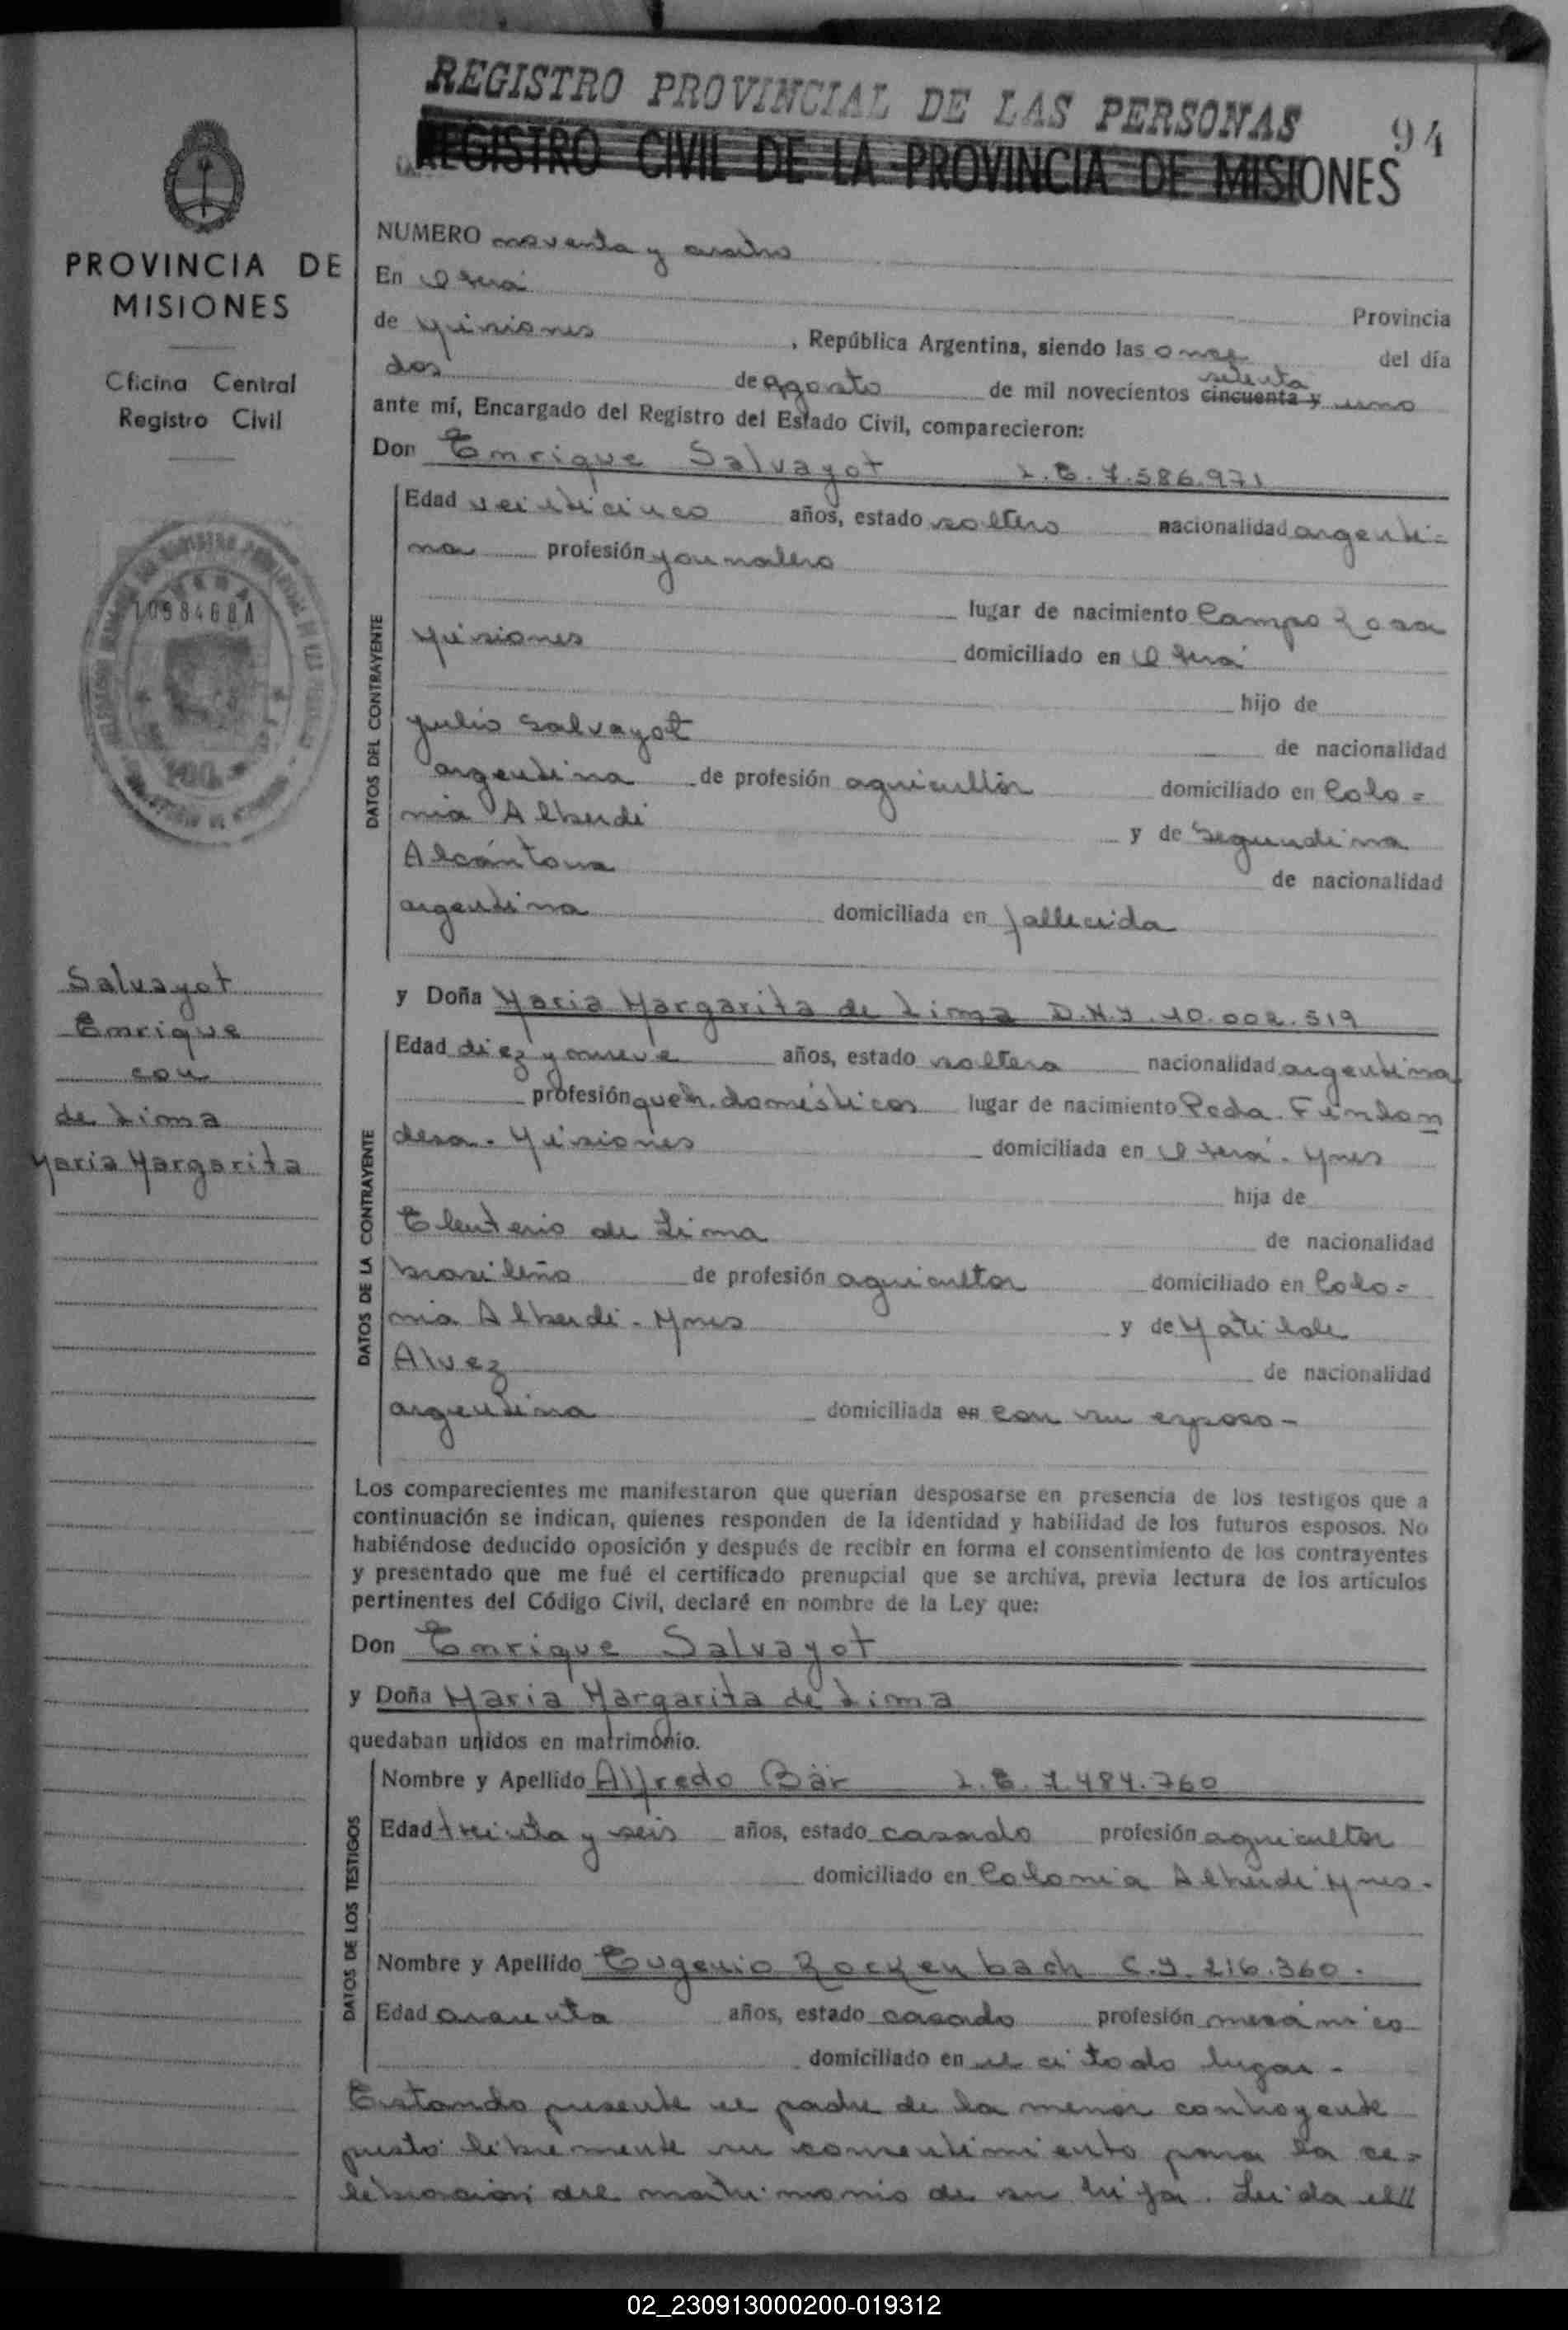 REGISTRO PROVINCIAL DE LAS PERSONAS
94
REGISTRO CIVIL DE LA PROVINCIA DE MISIONES
PROVINCIA DE
MISIONES
Oficina Central
Registro Civil
1098468A
100
Salvayot
Enrique
con
de Lima
Maria Margarita
NUMERO noventa y cuatro
En Oberá
Provincia
de Misiones, República Argentina, siendo las once del día
dos de Agosto de mil novecientos cincuenta y setenta uno
ante mí, Encargado del Registro del Estado Civil, comparecieron:
Don Enrique Salvayot L.E. 7.586.971
DATOS DEL CONTRAYENTE
Edad veinticinco años, estado soltero nacionalidad argenti=
na profesión jornalero
lugar de nacimiento Campo Rosa
Misiones domiciliado en Oberá
hijo de
Julio Salvayot de nacionalidad
argentina de profesión agricultor domiciliado en Colo=
nia Alberdi y de Segundina
Alcántara de nacionalidad
argentina domiciliada en fallecida
y Doña Maria Margarita de Lima D.N.I. 10.002.519
DATOS DE LA CONTRAYENTE
Edad diez y nueve años, estado soltera nacionalidad argentina
profesión queh. domésticos lugar de nacimiento Pcda. Finlan
desa. Misiones domiciliada en Oberá. Mnes
hija de
Eleuterio de Lima de nacionalidad
brasileño de profesión agricultor domiciliado en Colo=
nia Alberdi. Mnes y de Matilde
Alvez de nacionalidad
argentina domiciliada en con su esposo-
Los comparecientes me manifestaron que querían desposarse en presencia de los testigos que a
continuación se indican, quienes responden de la identidad y habilidad de los futuros esposos. No
habiéndose deducido oposición y después de recibir en forma el consentimiento de los contrayentes
y presentado que me fué el certificado prenupcial que se archiva, previa lectura de los artículos
pertinentes del Código Civil, declaré en nombre de la Ley que:
Don Enrique Salvayot
y Doña Maria Margarita de Lima
quedaban unidos en matrimonio.
DATOS DE LOS TESTIGOS
Nombre y Apellido Alfredo Bär L.E. 7.484.760
Edad treinta y seis años, estado casado profesión agricultor
domiciliado en Colonia Alberdi Mnes.
Nombre y Apellido Eugenio Rockenbach C.I. 216.360.
Edad cuarenta años, estado casado profesión mecánico
domiciliado en el citado lugar-
Estando presente el padre de la menor contrayente
prestó libremente su consentimiento para la ce=
lebración del matrimonio de su hija. Leída el//
02_230913000200-019312